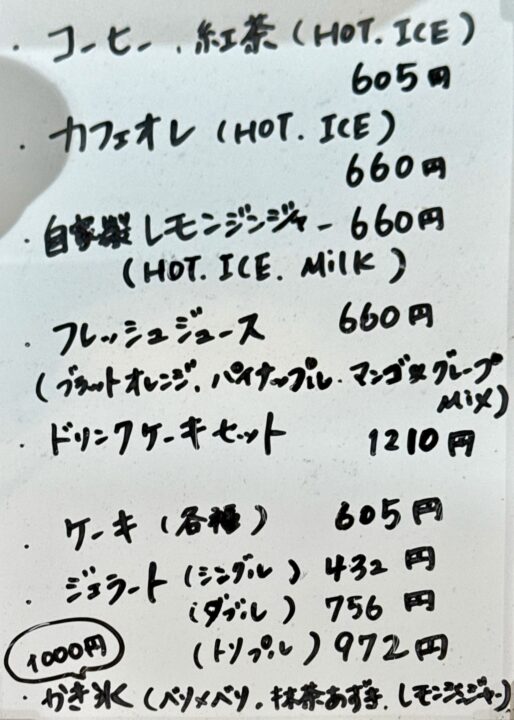 ・コーヒー、紅茶(HOT. ICE)
605円
・カフェオレ(HOT. ICE)
660円
・自家製レモンジンジャー 660円
(HOT. ICE. Milk)
・フレッシュジュース 660円
(ブラットオレンジ. パイナップル. マンゴ&グレープ
Mix)
・ドリンクケーキセット 1210円
・ケーキ(各種) 605円
・ジェラート(シングル) 432円
(ダブル) 756円
(トリプル) 972円
1000円
・かき氷(ベリ×ベリ. 抹茶あずき. レモンジンジャー)